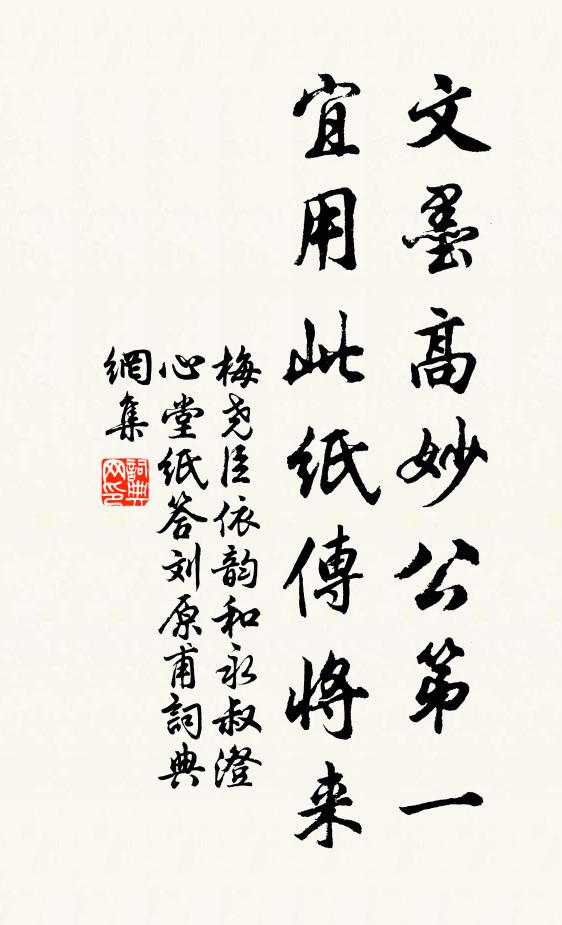 文墨高妙公第一
宜用此紙傳將来
梅尧臣依韵和永叔澄
心堂紙答刘原甫詞典
網集
詞典
网印